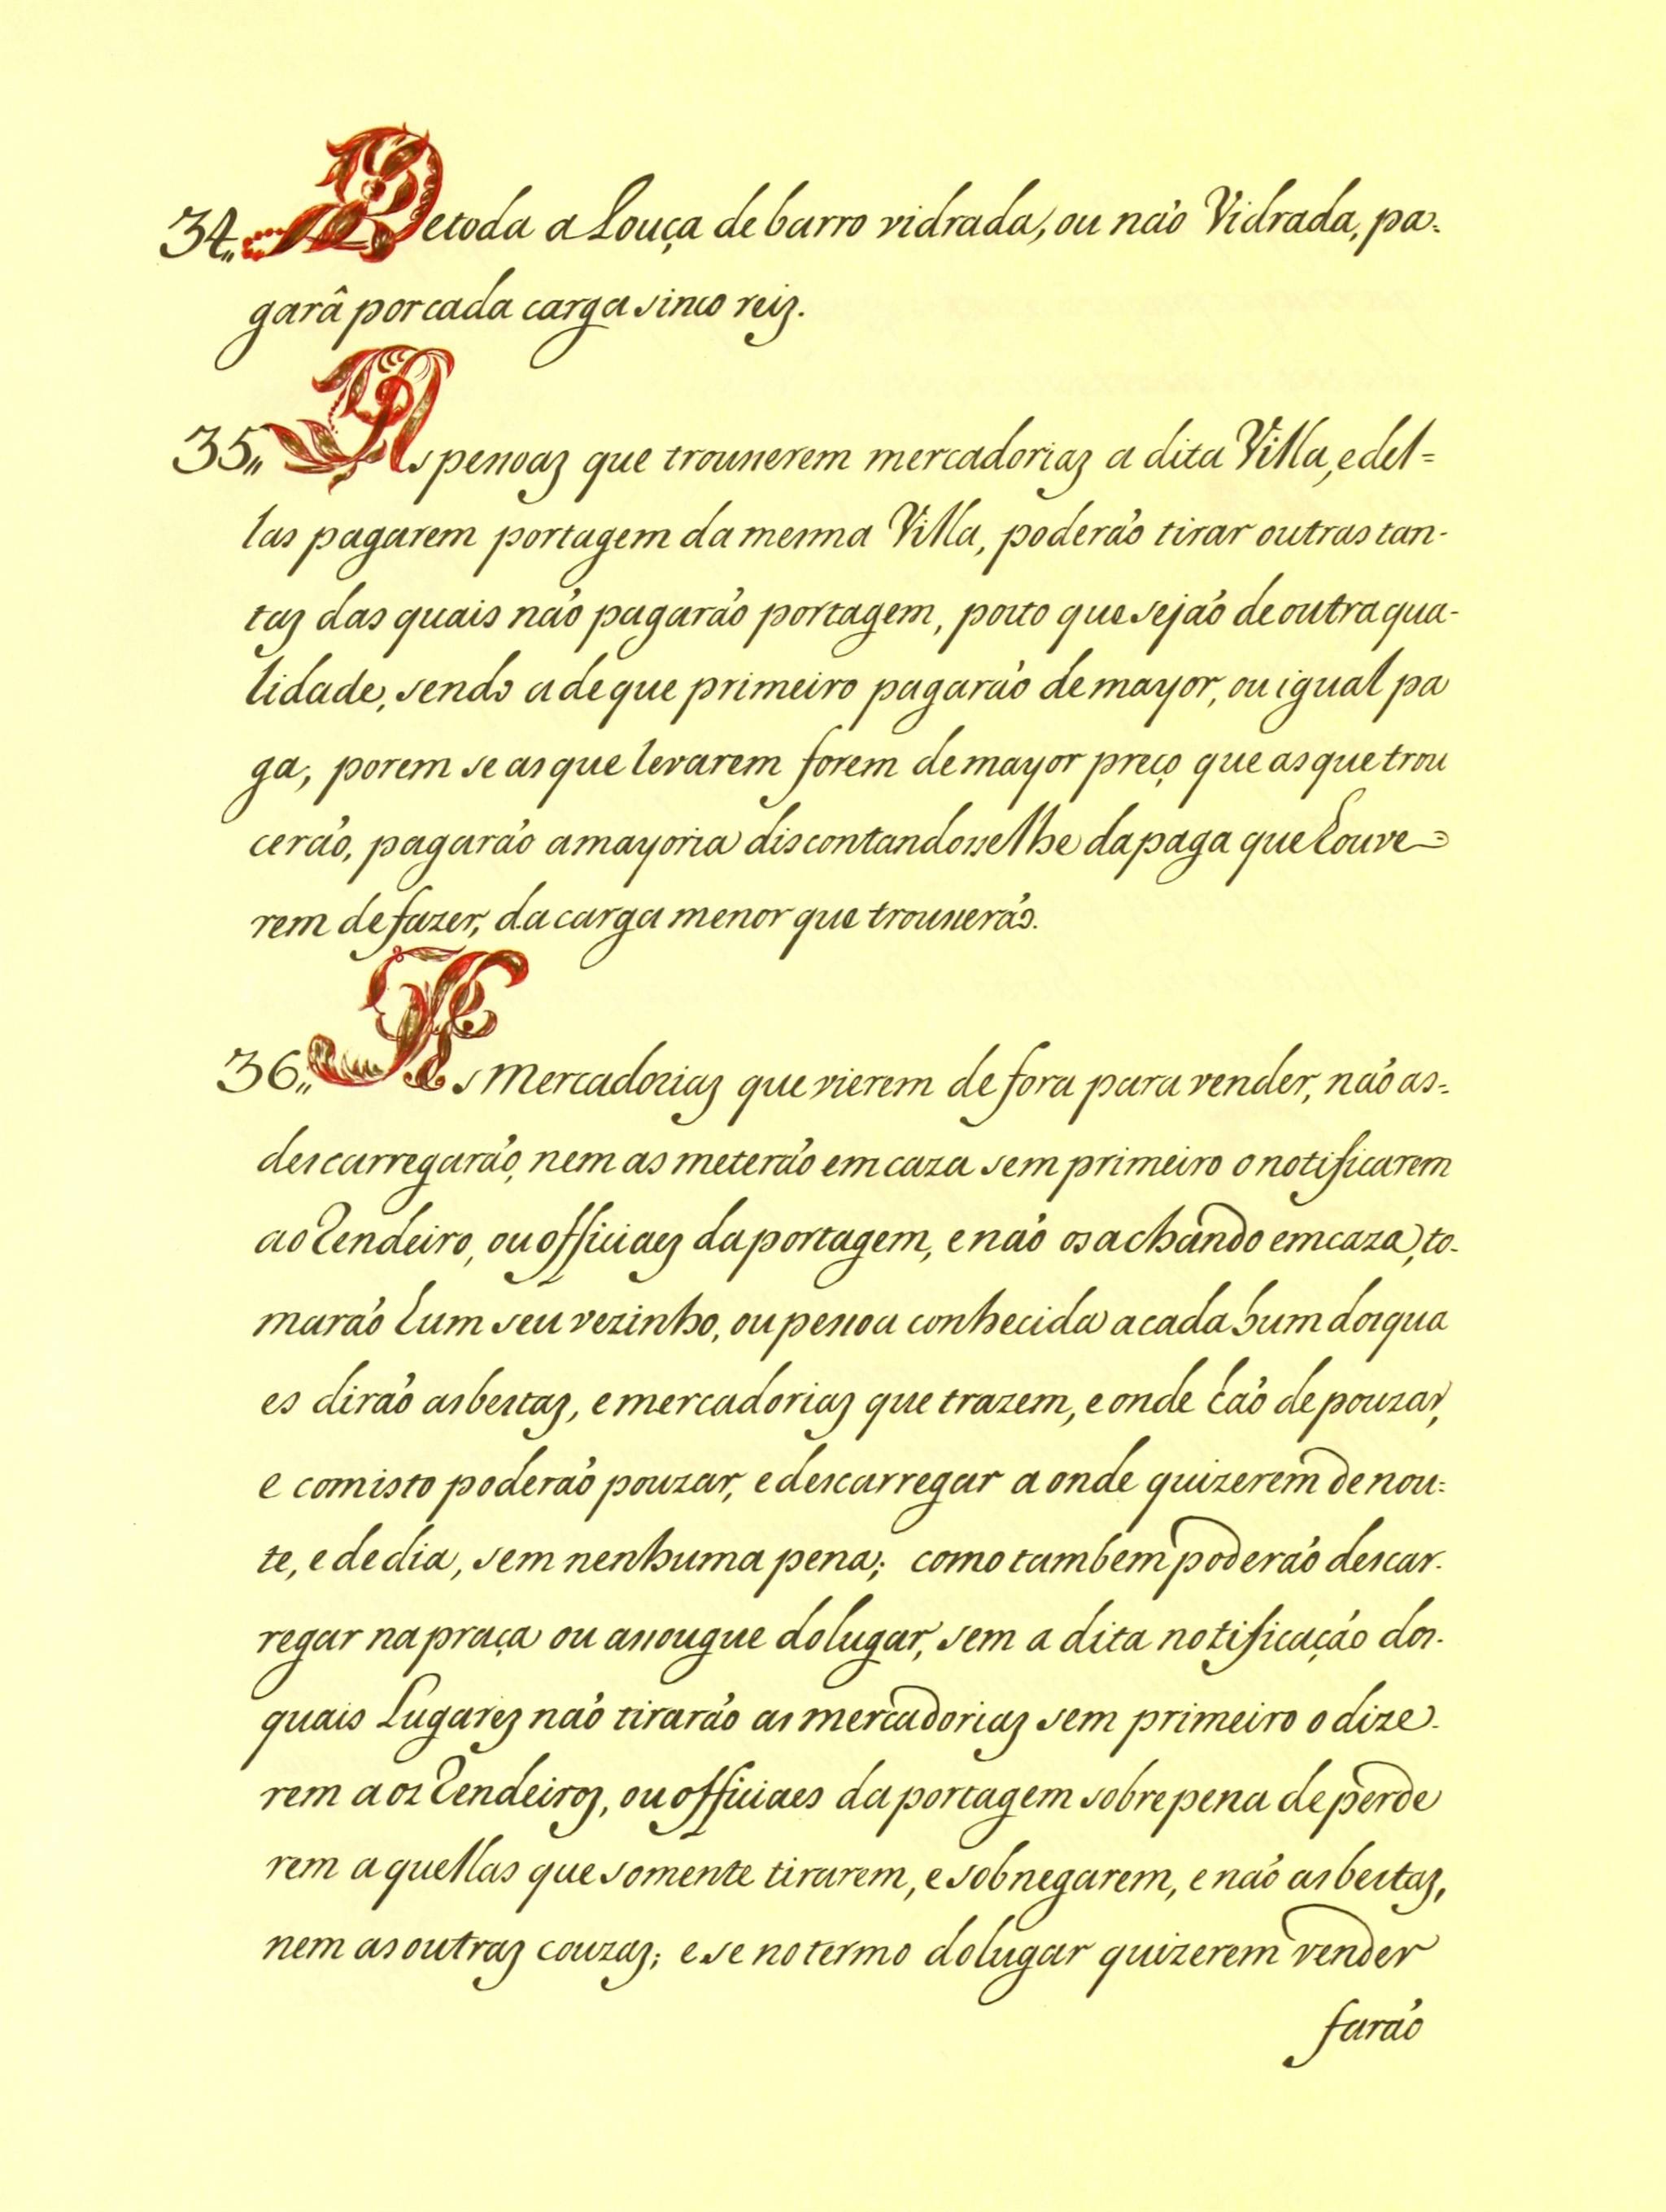 34„ De toda a Louça de barro vidrada, ou não Vidrada, pa-
garâ por cada carga sinco reiz.
35„ As pessoaz que trouxerem mercadoriaz a dita Villa, e del=
las pagarem portagem da mesma Villa, poderão tirar outras tan-
taz das quais não pagarão portagem, posto que sejão de outra qua-
lidade, sendo a de que primeiro pagarão de mayor, ou igual pa
ga; porem se as que levarem forem de mayor preço que as que trou
cerão, pagarão a mayoria discontandosselhe da paga que houve=
rem de fazer, da carga menor que trouxerão.
36„ As Mercadoriaz que vierem de fora para vender, não as=
descarregarão, nem as meterão em caza sem primeiro o notificarem
ao Rendeiro, ou officiaez da portagem, e não os achando em caza, to-
marão hum seu vezinho, ou pessoa conhecida a cada hum dos qua
es dirão as bestaz, e mercadoriaz que trazem, e onde hão de pouzar,
e com isto poderão pouzar, e descarregar a onde quizerem de nou=
te, e de dia, sem nenhuma pena; como tambem poderão descar-
regar na praça ou assougue do lugar, sem a dita notificação dos-
quais Lugarez não tirarão as mercadoriaz sem primeiro o dize-
rem aos Rendeiroz, ou officiaes da portagem sobre pena de perde
rem aquellas que somente tirarem, e sobnegarem, e não as bestaz,
nem as outraz couzaz; e se no termo do lugar quizerem vender
farão